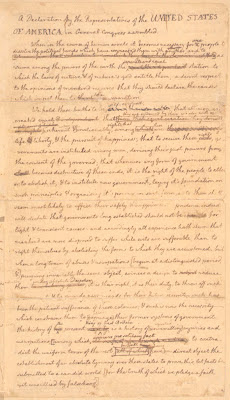 A Declaration by the Representatives of the UNITED STATES
OF AMERICA, in General Congress assembled.
When in the course of human events it becomes necessary for
dissolve the political bands which have connected them with another, and to
among the powers of the earth the
which the laws of nature & of nature's god entitle them, a decent respect
to the opinions of mankind requires that they should declare the causes
which impel them to
We hold these truths to be
created equal
life, & liberty, & the pursuit of happiness; that to secure these
governments are instituted among men, deriving their just powers from
the consent of the governed; that whenever any form of government
becomes destructive of these ends, it is the right of the people to alter
or to abolish it, & to institute new government, laying it's foundation on
such principles & organising it's powers in such form, as to them shall
seem most likely to effect their safety & happiness. prudence indeed
will dictate that governments long established should not be changed for
light & transient causes: and accordingly all experience hath shewn that
mankind are more disposed to suffer while evils are sufferable, than to
right themselves by abolishing the forms to which they are accustomed. but
when a long train of abuses & usurpations, begun at a distinguished period
& pursuing invariably the same object, evinces a design to reduce
them it is their right, it is their duty, to throw off such
& to provide new guards for their future security. such has
been the patient sufferance of these colonies; & such is now the necessity
which constrains them to their former systems of government.
the history of is a history of injuries and
usurpations, among which to contra-
dict the uniform tenor of the rest in direct object the
establishment of an absolute tyranny over these states. to prove this, let facts be
submitted to a candid world, for the truth of which we pledge a faith
yet unsullied by falsehood.